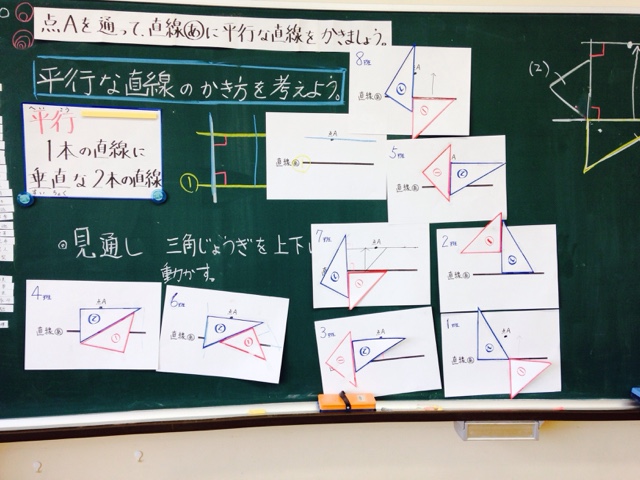 点Aを通って、直線あに平行な直線をかきましょう。
平行な直線のかき方を考えよう。
へい こう
平行
1本の直線に
垂直な2本の直線
すい ちょく
①
直線あ
A
8班
A
直線あ
5班
A
直線あ
(2)
◎見通し 三角じょうぎを上下に
動かす。
7班
A
直線あ
2班
A
直線あ
4班
A
直線あ
6班
A
直線あ
3班
A
直線あ
1班
A
直線あ